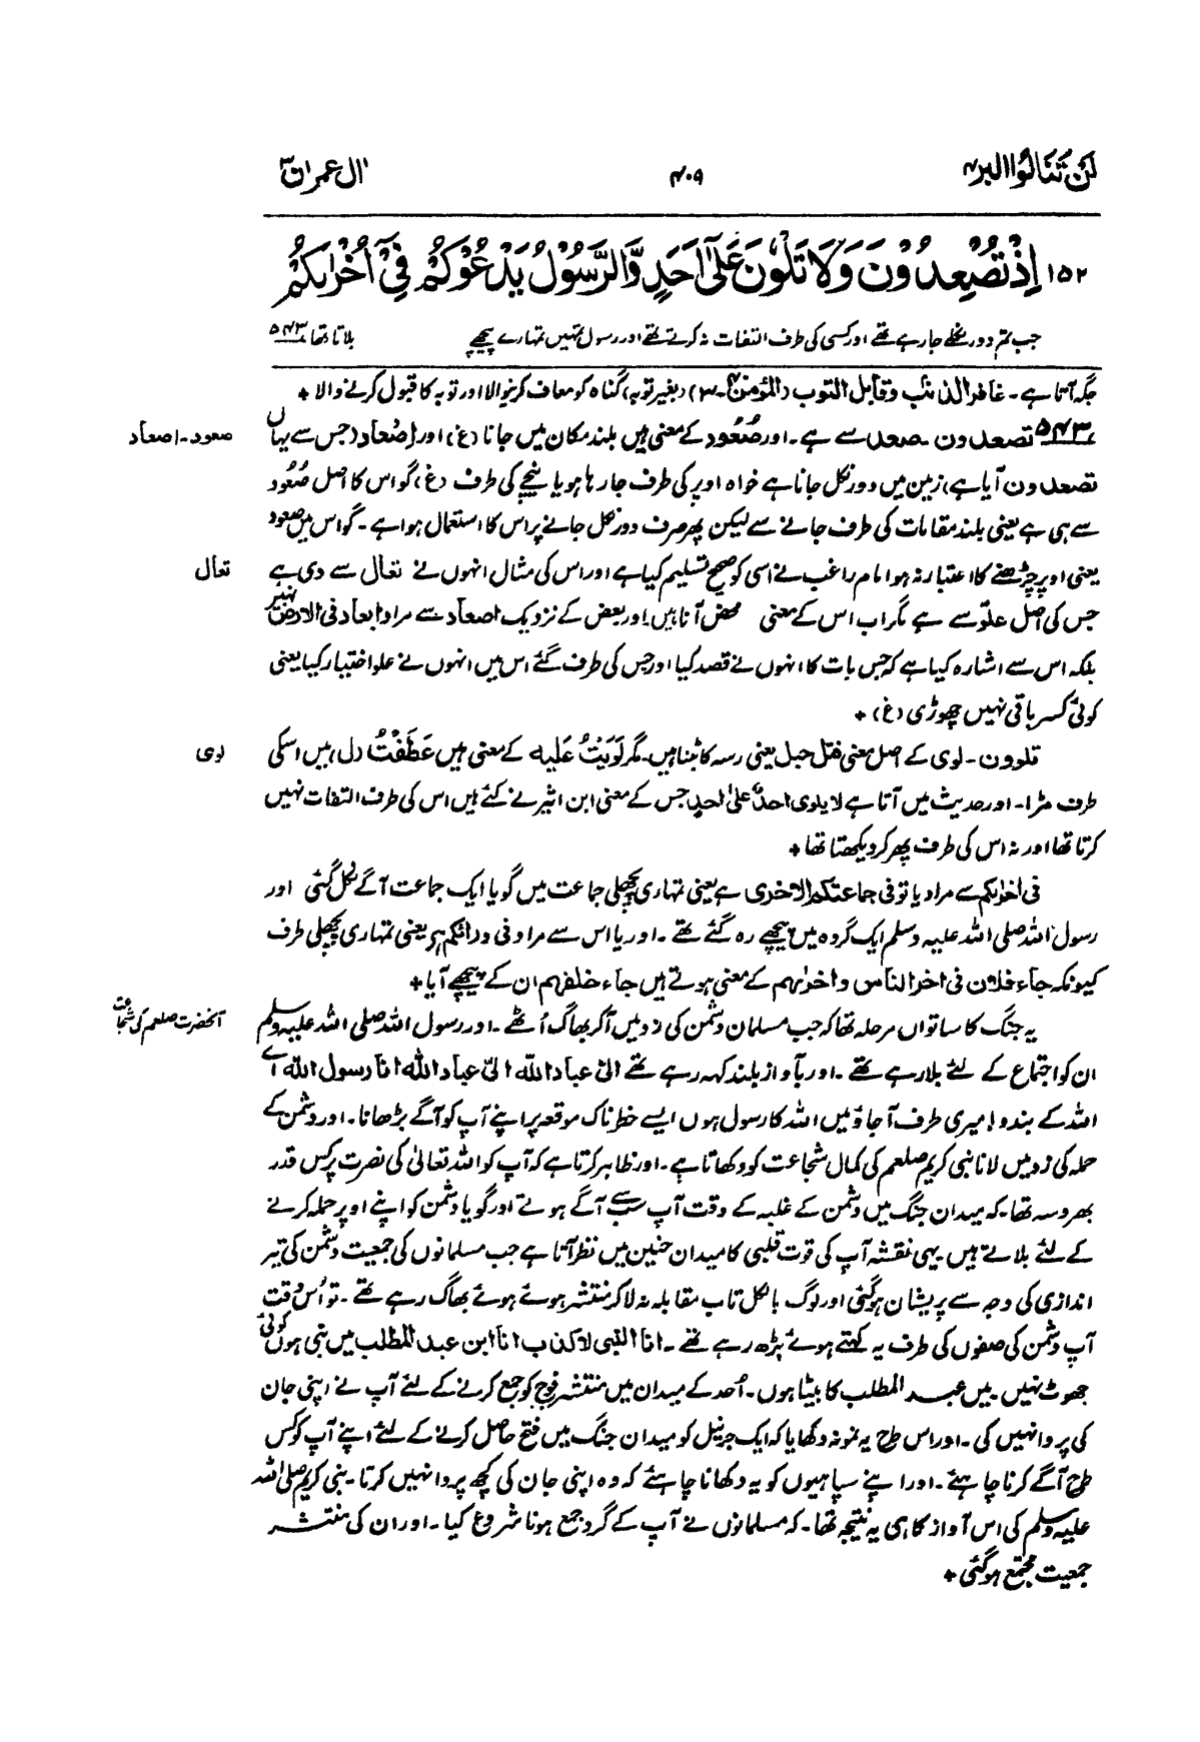 لَنْ تَنَالُوا البر۴
۴۰۹
اٰل عمرٰن ۳
۱۵۲ اِذْ تُصْعِدُوْنَ وَلَا تَلْوٗنَ عَلٰۤى اَحَدٍ وَّالرَّسُوْلُ يَدْعُوْكُمْ فِيْۤ اُخْرٰىكُمْ
جب تم دور نکلے جا رہے تھے اور کسی کی طرف التفات نہ کرتے تھے اور رسول تمہیں تمہارے پیچھے بلاتا تھا ۵۴۳
جگہ آتا ہے۔ غافر الذنب وقابل التوب (المؤمن ۴۰-۳) (بغیر توبہ) گناہ کو معاف کرنیوالا اور توبہ کا قبول کرنے والا +
۵۴۳ تصعدون۔ صعد سے ہے۔ اور صُعُود کے معنی ہیں بلند مکان میں جانا (غ) اور اِصْعَاد (جس سے یہاں
صعود۔ اصعاد
تصعدون آیا ہے) زمین میں دور نکل جانا ہے خواہ اوپر کی طرف جا رہا ہو یا نیچے کی طرف (غ) گو اس کا اصل صُعُود
سے ہی ہے یعنی بلند مقامات کی طرف جانے سے لیکن پھر صرف دور نکل جانے پر اس کا استعمال ہوا ہے۔ گو اس میں صعود
یعنی اوپر چڑھنے کا اعتبار نہ ہو امام راغب نے اسی کو صحیح تسلیم کیا ہے اور اس کی مثال انہوں نے تعال سے دی ہے
تعال
جس کی اصل علوّ سے ہے مگر اب اس کے معنی محض آنا ہیں۔ اور بعض کے نزدیک اصعاد سے مراد ابعاد فی الارض نہیں
بلکہ اس سے اشارہ کیا ہے کہ جس بات کا انہوں نے قصد کیا اور جس کی طرف گئے اس میں انہوں نے علو اختیار کیا یعنی
کوئی کسر باقی نہیں چھوڑی (غ) +
تلوون۔ لوی کے اصل معنی فتل حبل یعنی رسہ کا بٹنا ہیں۔ مگر لَوَیْتُ عَلَیه کے معنی ہیں عَطَفْتُ (ل) میں اسکی
لوی
طرف مڑا۔ اور حدیث میں آتا ہے لا یلوی احدٌ علیٰ احدٍ جس کے معنی ابن اثیر نے کئے ہیں اس کی طرف التفات نہیں
کرتا تھا اور نہ اس کی طرف پھر کر دیکھتا تھا +
فی اخرٰىکم سے مراد یا تو فی جماعتکم الاخری ہے یعنی تمہاری پچھلی جماعت میں گویا ایک جماعت آگے نکل گئی اور
رسول اللہ صلی اللہ علیہ وسلم ایک گروہ میں پیچھے رہ گئے تھے۔ اور یا اس سے مراد فی ورائکم ہے یعنی تمہاری پچھلی طرف
کیونکہ جاء فلان فی اخر الناس و اخرٰىہم کے معنی ہوتے ہیں جاء خلفہم ان کے پیچھے آیا +
یہ جنگ کا ساتواں مرحلہ تھا کہ جب مسلمان دشمن کی زد میں آکر بھاگ اُٹھے۔ اور رسول اللہ صلی اللہ علیہ وسلم
آنحضرت صلعم کی شجاعت
ان کو اجتماع کے لئے بلا رہے تھے۔ اور بآواز بلند کہہ رہے تھے الیّ عباد اللہ الیّ عباد اللہ انا رسول اللہ اے
اللہ کے بندو! میری طرف آ جاؤ میں اللہ کا رسول ہوں ایسے خطرناک موقعہ پر اپنے آپ کو آگے بڑھانا۔ اور دشمن کے
حملہ کی زد میں لانا نبی کریم صلعم کی کمال شجاعت کو دکھاتا ہے۔ اور ظاہر کرتا ہے کہ آپ کو اللہ تعالیٰ کی نصرت پر کس قدر
بھروسہ تھا۔ کہ میدان جنگ میں دشمن کے غلبہ کے وقت آپ سب سے آگے ہوتے اور گویا دشمن کو اپنے اوپر حملہ کرنے
کے لئے بلاتے ہیں۔ یہی نقشہ آپ کی قوت قلبی کا میدان حنین میں نظر آتا ہے جب مسلمانوں کی جمعیت دشمن کی تیر
اندازی کی وجہ سے پریشان ہو گئی اور لوگ بالکل تاب مقابلہ نہ لا کر منتشر ہوئے ہوئے بھاگ رہے تھے۔ تو اُس وقت
آپ دشمن کی صفوں کی طرف یہ کہتے ہوئے بڑھ رہے تھے۔ انا النبی لا کذب انا ابن عبد المطلب میں نبی ہوں کوئی
جھوٹ نہیں۔ میں عبد المطلب کا بیٹا ہوں۔ اُحد کے میدان میں منتشر فوج کو جمع کرنے کے لئے آپ نے اپنی جان
کی پروا نہیں کی۔ اور اس طرح یہ نمونہ دکھایا کہ ایک جرنیل کو میدان جنگ میں فتح حاصل کرنے کے لئے اپنے آپ کو کس
طرح آگے کرنا چاہئے۔ اور اپنے سپاہیوں کو یہ دکھانا چاہئے کہ وہ اپنی جان کی کچھ پروا نہیں کرتا۔ نبی کریم صلی اللہ
علیہ وسلم کی اس آواز کا ہی یہ نتیجہ تھا۔ کہ مسلمانوں نے آپ کے گرد جمع ہونا شروع کیا۔ اور ان کی منتشر
جمعیت مجتمع ہو گئی +